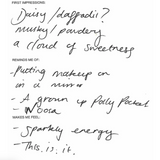 FIRST IMPRESSIONS:
Daisy/daffodil?
musky/powdery
a cloud of sweetness
REMINDS ME OF:
- Putting makeup on
in a mirror
- A grown up Polly Pocket
- Noosa
MAKES ME FEEL:
- Sparkly energy
- This is it.